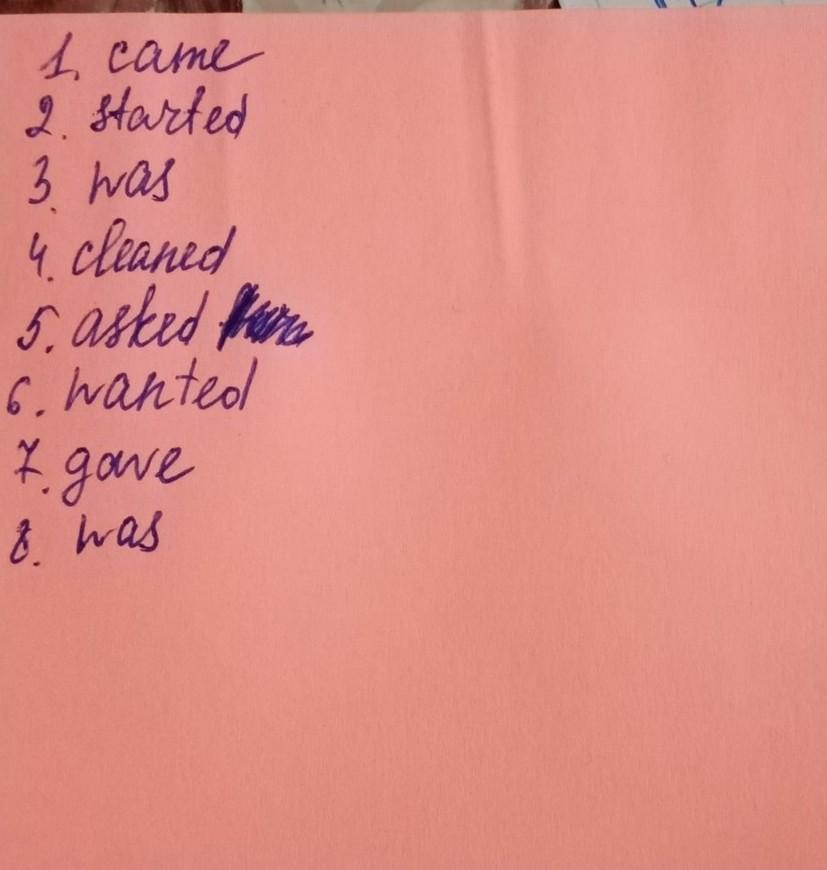 1. came
2. started
3. was
4. cleaned
5. asked
6. wanted
7. gave
8. was